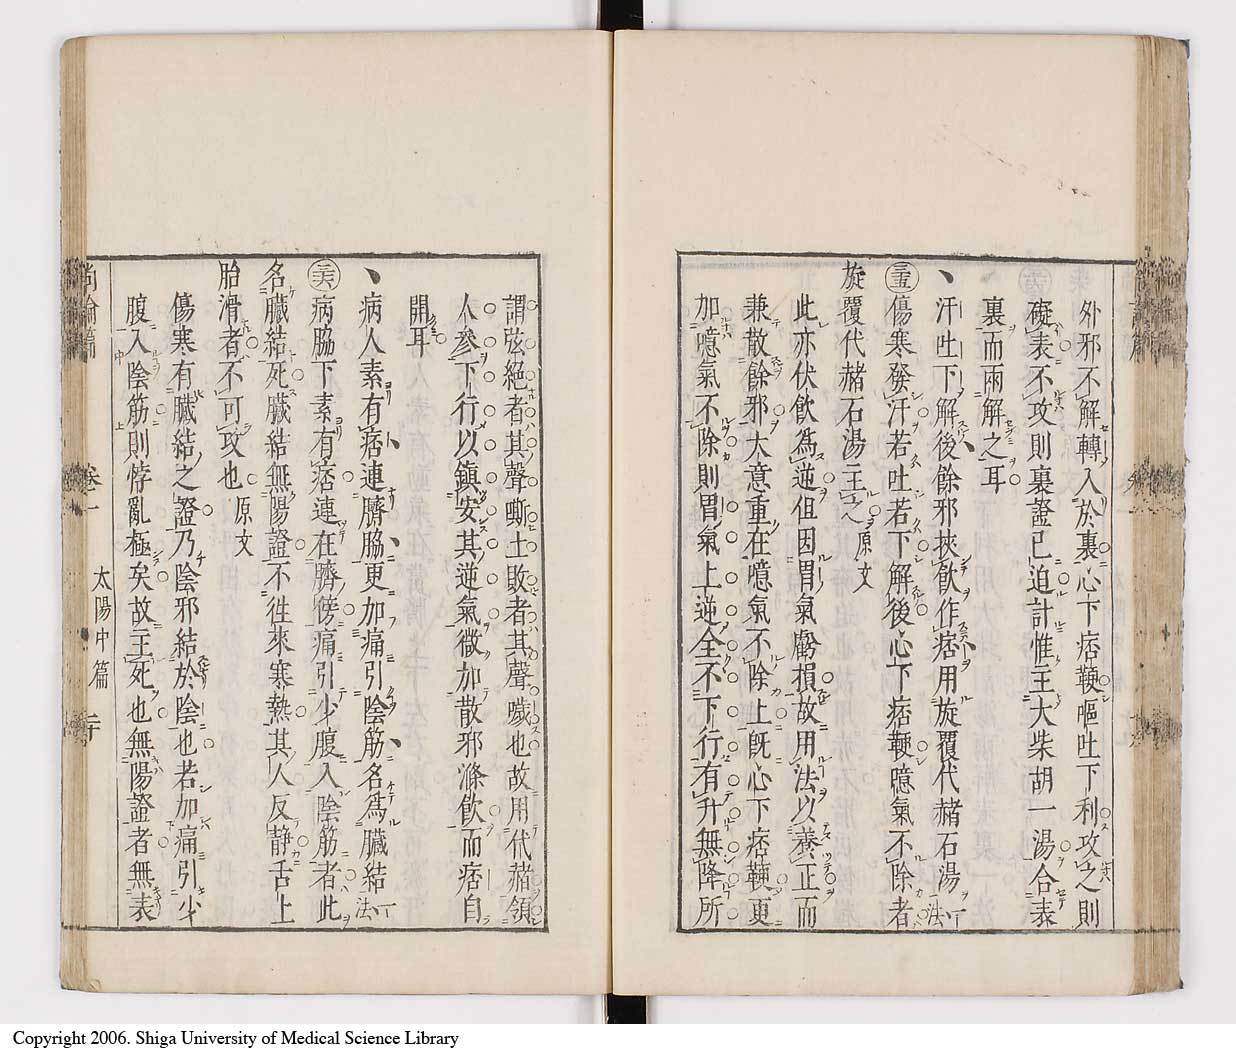 外邪不解轉入於裏心下痞鞕嘔吐下利攻之則
礙表不攻則裏證已迫計惟主大柴胡一湯合表
裏而兩解之耳
丶汗吐下解後餘邪挾飲作痞用旋覆代赭石湯法
傷寒發汗若吐若下解後心下痞鞕噫氣不除者
旋覆代赭石湯主之原文
此亦伏飲爲逆但因胃氣虧損故用法以養正而
兼散餘邪大意重在噫氣不除上旣心下痞鞕更
加噫氣不除則胃氣上逆全不下行有升無降所
謂弦絕者其聲嘶土敗者其聲噦也故用代赭領
人參下行以鎮安其逆氣微加散邪滌飲而痞自
開耳
丶病人素有痞連臍脇更加痛引陰筋名爲臟結法
病脇下素有痞連在臍傍痛引少腹入陰筋者此
名臟結死臟結無陽證不徃來寒熱其人反静舌上
胎滑者不可攻也原文
傷寒有臟結之證乃陰邪結於陰也若加痛引少
腹入陰筋則悖亂極矣故主死也無陽證者無表
尚論篇 卷一 太陽中篇
Copyright 2006. Shiga University of Medical Science Library